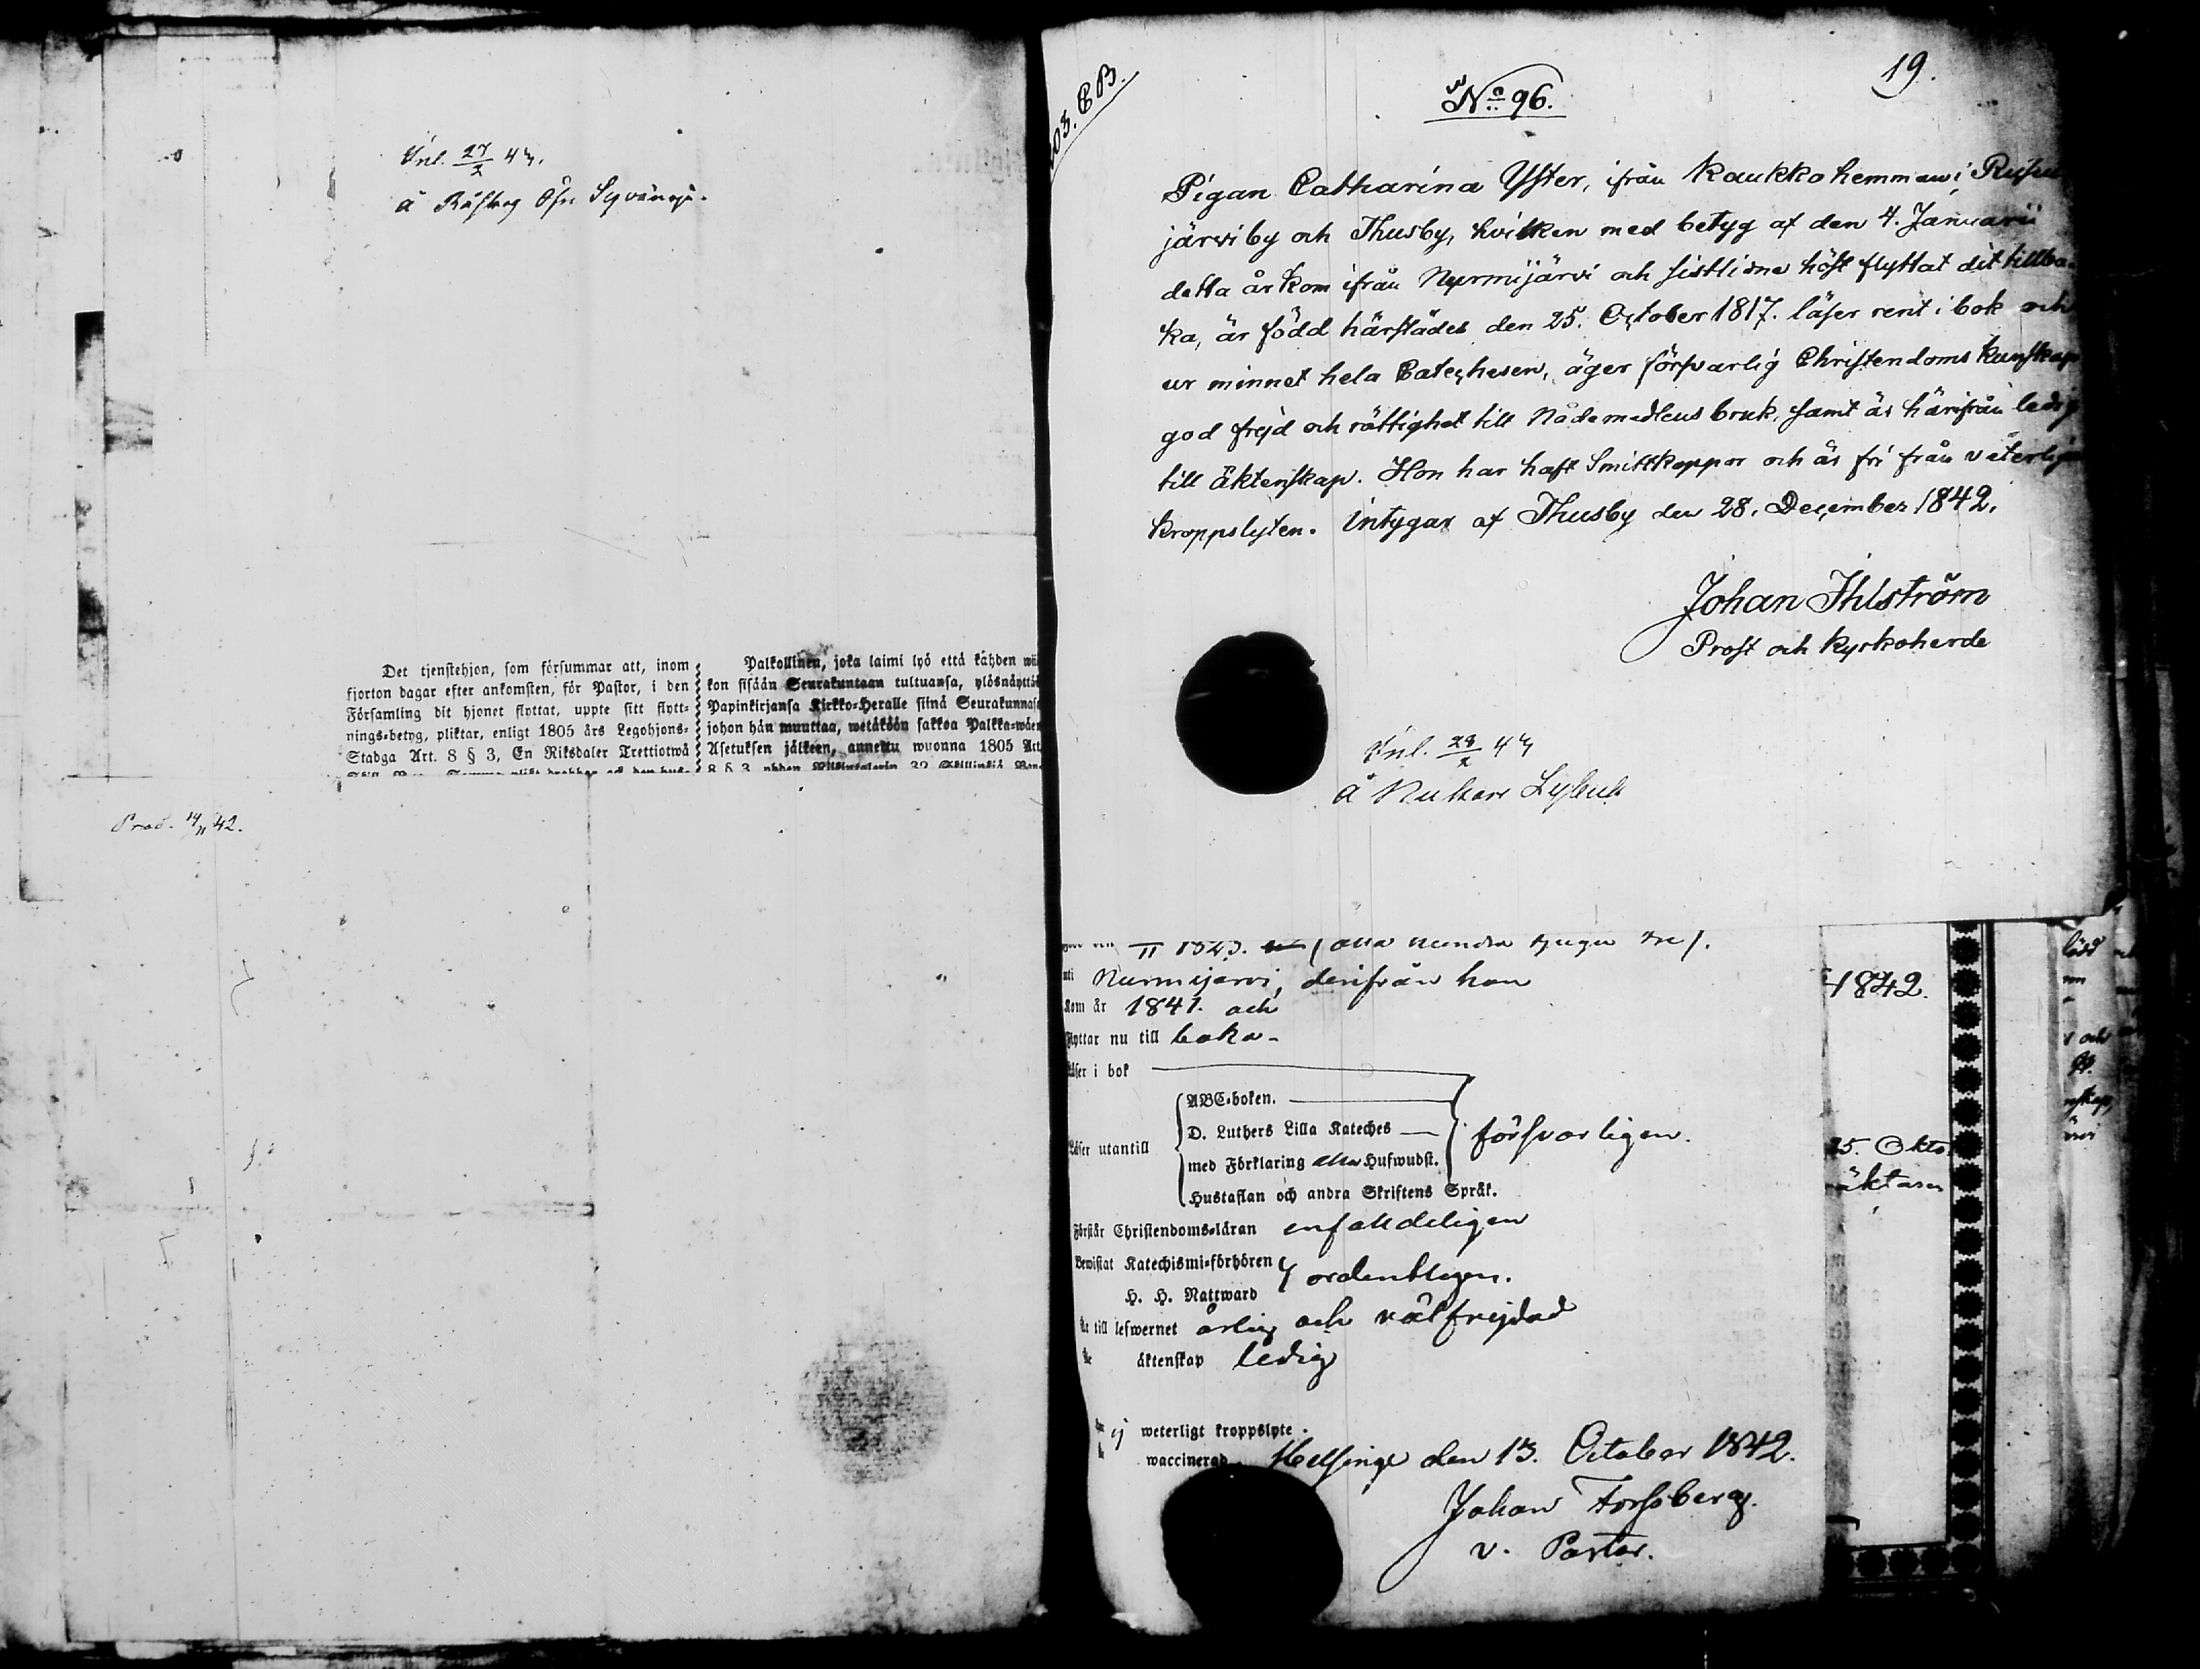 Inl. 27/2 43.
å Råskog Ofre Syvänoja.
Det tjenstehjon, som försummar att, inom
fjorton dagar efter ankomsten, för Pastor, i den
Församling dit hjonet flyttat, uppte sitt flytt-
nings-betyg, pliktar, enligt 1805 års Legohjons-
Stadga Art. 8 § 3, En Riksdaler Trettiotwå
Palkollinen, joka laimi lyö että kahden wii
kon sisään Seurakuntaan tultuansa, ylösnäyttää
Papinkirjansa Kirkko-Heralle siinä Seurakunnasa
johon hän muuttaa, wetäköön sakkoa Palkka-wäen
Asetuksen jälkeen, annettu wuonna 1805 Art.
8 § 3, yhden Riksintalerin 32 Skillinkiä Ban-
Prod. 14/11 42.
103. C B.
No 96.
19.
Pigan Catharina Yster, ifrån Kaukko hemman i Rusu
järvi by och Thusby, hvilken med betyg af den 4. Januarii
detta år kom ifrån Nurmijärvi och sistlidne höst flyttat dit tillba-
ka, är född härstädes den 25. October 1817. läser rent i bok och
ur minnet hela Catechesen, äger försvarlig Christendoms kunskap
god frejd och rättighet till Nådemedlens bruk, samt är härifrån ledig
till äktenskap. Hon har haft Smittkoppor och är fri från veterligen
kroppslyten. Intygar af Thusby den 28. December 1842.
Johan Ihlström
Prost och Kyrkoherde
Inl. 28/2 43
å Nukari
II 1823. (
Nurmijärvi, derifrån han
kom år 1841. och
Flyttar nu till baka-
Läser i bok
ABC-boken.
D. Luthers Lilla Kateches
Läser utantill
försvarligen.
med Förklaring alla Hufwudst.
Hustaflan och andra Skriftens Språk.
Förstår Christendoms-läran enfalldeligen
Bewistat Katechismi-förhören
ordentligen.
H. H. Nattward
till lefwernet ärlig och välfrejdad
äktenskap ledig
ej weterligt kroppslyte.
waccinerad. Helsinge den 13. October 1842.
Johan Forssberg.
v. Pastor.
1842.
25. Okto